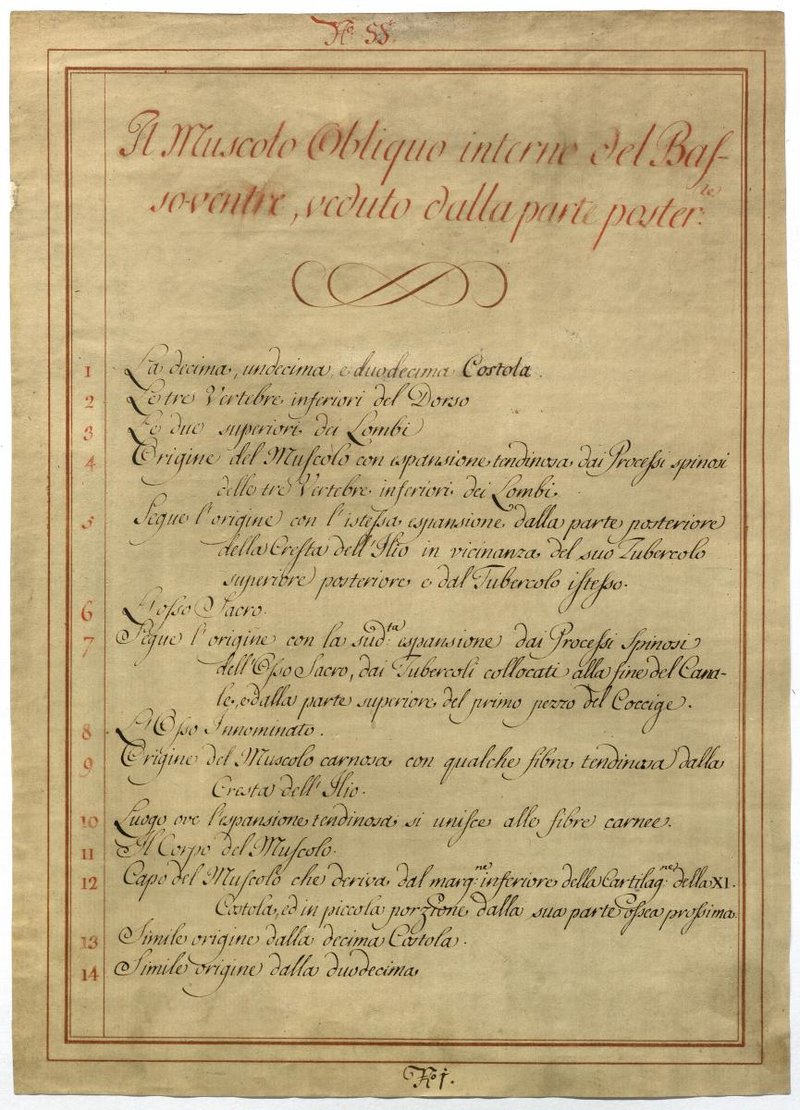 N.º 58.
Il Muscolo Obliquo interno del Baſ-
soventre, veduto dalla parte poster.re
1 La decima, undecima, e duodecima Costola.
2 Le tre Vertebre inferiori del Dorso
3 Le due superiori dei Lombi
4 Origine del Muſcolo con espansione tendinosa dai Proceſsi spinosi
delle tre Vertebre inferiori dei Lombi.
5 Segue l'origine con l'isteſsa espansione dalla parte posteriore
della Creſta dell'Ilio in vicinanza del suo Tubercolo
superiore posteriore e dal Tubercolo iſteſso.
6 L'Oſso Sacro.
7 Segue l'origine con la sud.ta espansione dai Proceſsi Spinosi
dell'Oſso Sacro, dai Tubercoli collocati alla fine del Cana-
le, e dalla parte superiore del primo pezzo del Coccige.
8 L'Oſso Innominato.
9 Origine del Muscolo carnosa con qualche fibra tendinosa dalla
Cresta dell'Ilio.
10 Luogo ove l'espansione tendinosa si uniſce alle fibre carnee.
11 Il Corpo del Muſcolo.
12 Capo del Muſcolo che deriva dal marg.ne inferiore della Cartilag.ne della XI.
Costola, ed in piccola porzione dalla sua parte Oſsea proſsima
13 Simile origine dalla decima Costola.
14 Simile origine dalla duodecima
N.º 1.